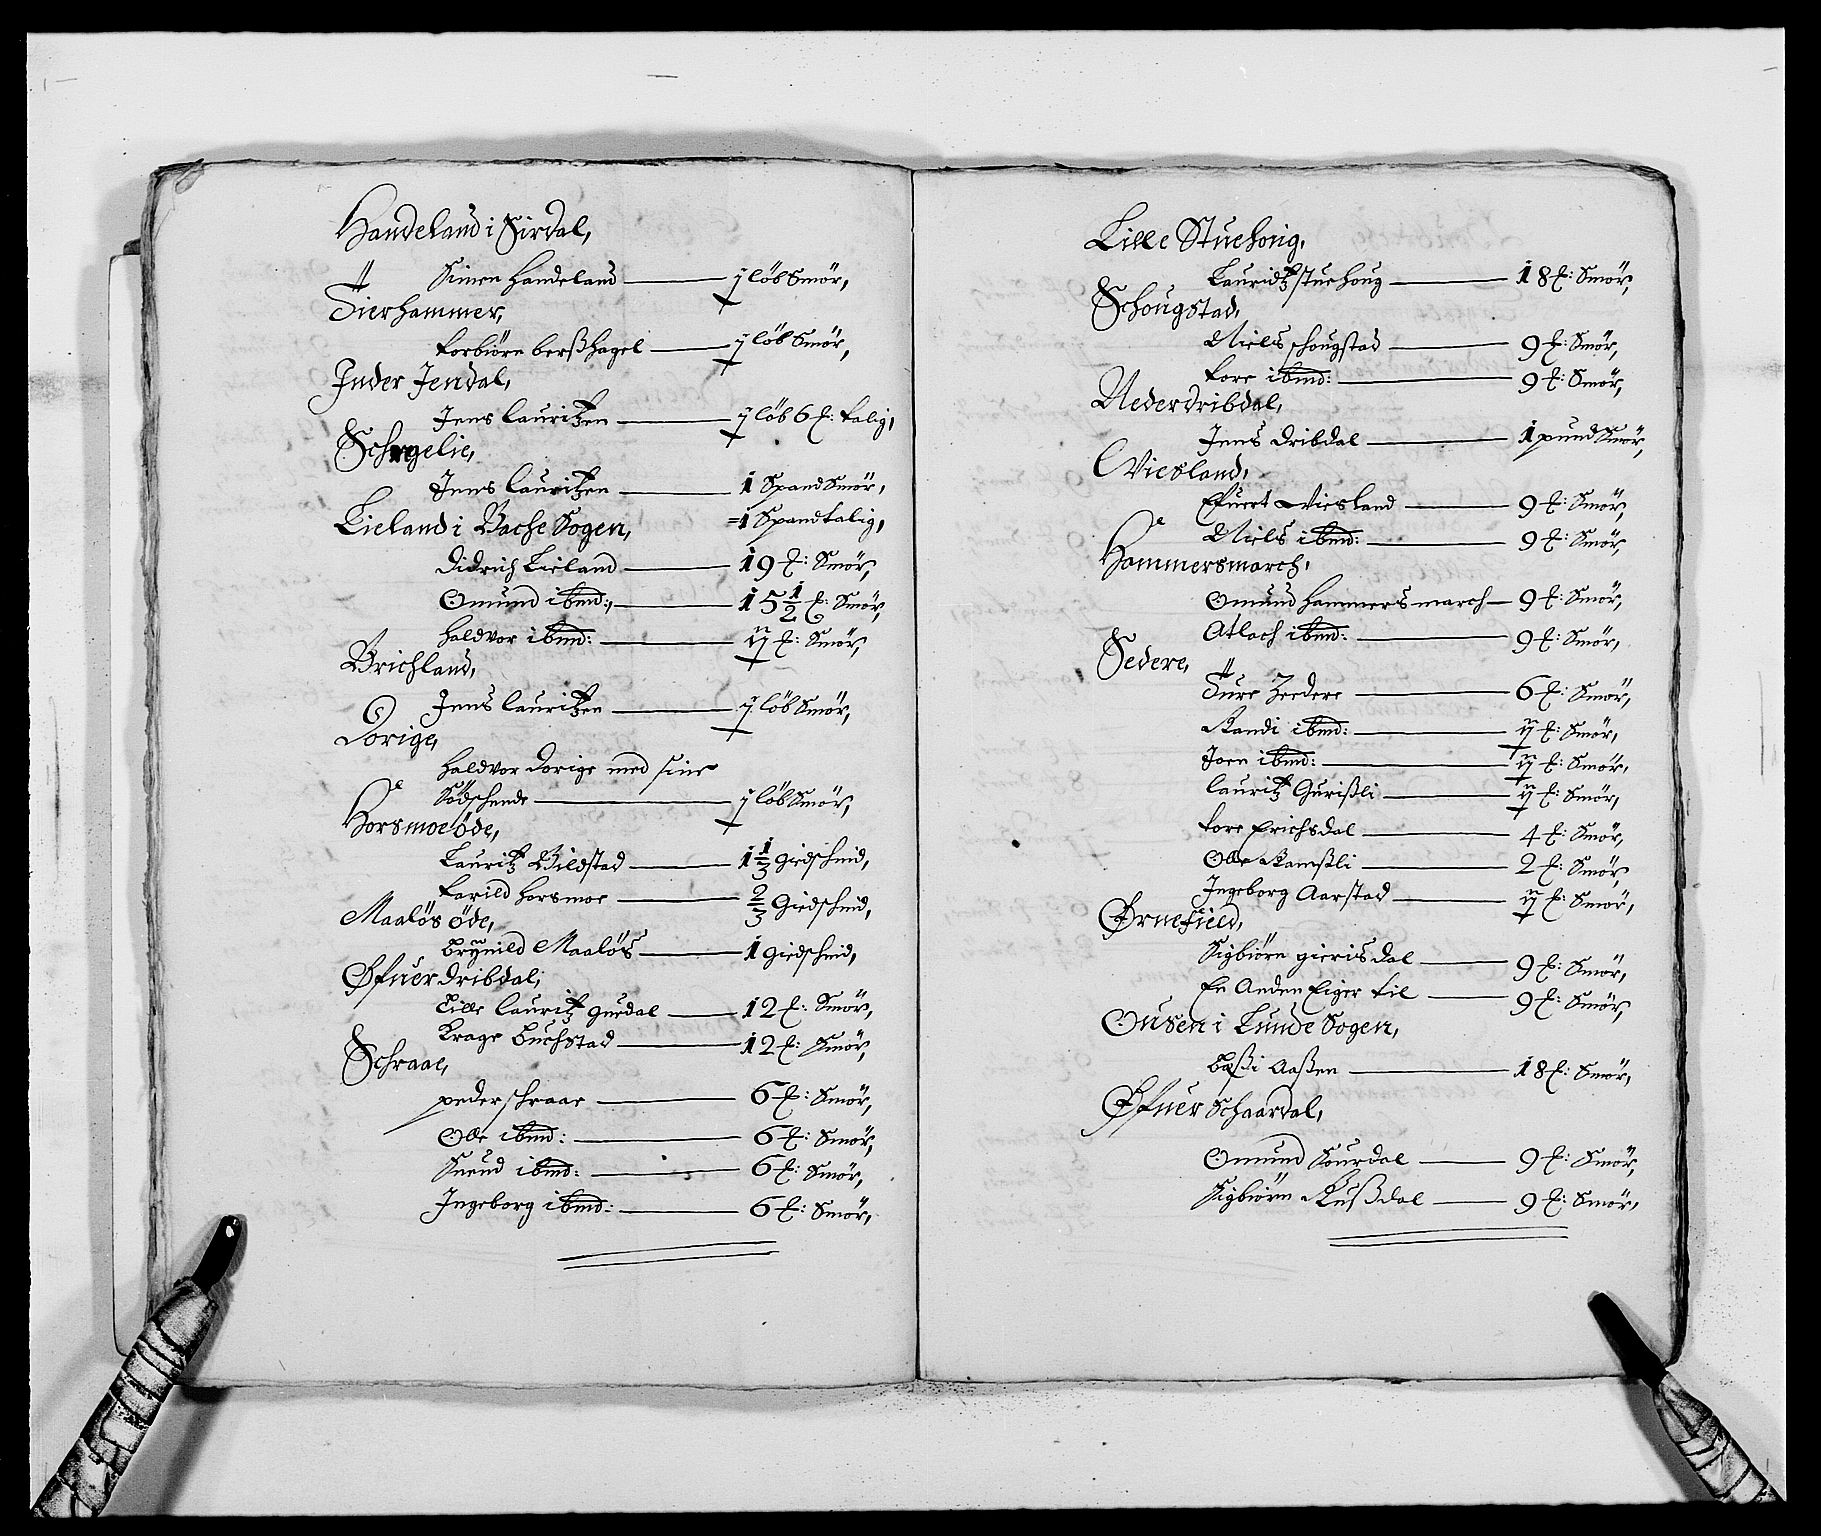 Handeland i Sirdal,
Simen Handeland — j löb Smör,
Tierhammer,
Torbiörn berßhagel — j löb Smör,
Inder Jendal,
Jens lauritzen — j löb 6 £: talig,
Jens lauritzen — 1 Spand Smör,
=1 Spand talig,
Lieland i Bache Sogen,
Didrich Lieland — 19 £: Smör,
Omund ibmd: — 15 1/2 £: Smör,
Haldvor ibmd: — £: Smör,
Brichland,
Jens lauritzen — j löb Smör,
Dorige,
Haldvor Dorige med sine
Södschende — j löb Smör,
Horsmoe öde,
Lauritz Bildstad — 1 1/3 giedschind,
Tarild Horsmoe — 2/3 Giedschind,
Maalös öde,
Brynild Maalös — 1 giedschind,
Øfuer dribdal,
Lille lauritz guedal — 12 £: Smör,
Krage Buchstad — 12 £: Smör,
Schraae,
peder schraae — 6 £: Smör,
Olle ibmd: — 6 £: Smör,
Suend ibmd: — 6 £: Smör,
Ingeborg ibmd: — 6 £: Smör,
Lille Stuehoug,
Lauridtz stuehoug — 18 £: Smör,
Schougstad,
Niels schougstad — 9 £: Smör,
Tore ibmd: — 9 £: Smör,
Nederdribdal,
Jens dribdal — 1 pund Smör,
Viesland,
Efuert Viesland — 9 £: Smör,
Niels ibmd: — 9 £: Smör,
Hammersmarch,
Omund Hammersmarch — 9 £: Smör,
Atlach ibmd: — 9 £: Smör,
Sedere,
Ture Zedere — 6 £: Smör,
Randi ibmd: — £: Smör,
Joen ibmd: — £: Smör,
lauritz Gurißli — £: Smör,
Tore Erichsdal — 4 £: Smör,
Olle Ramßli — 2 £: Smör,
Ingeborg Aarstad — £: Smör,
Ørnefield,
Sigbiörn gierisdal — 9 £: Smör,
En Anden Eiger til — 9 £: Smör,
Ousen i Lunde Sogen,
Baßi Aaßen — 18 £: Smör,
Øfuer Schaardal,
Omund Sourdal — 9 £: Smör,
Sigbiörn Rußdal — 9 £: Smör,